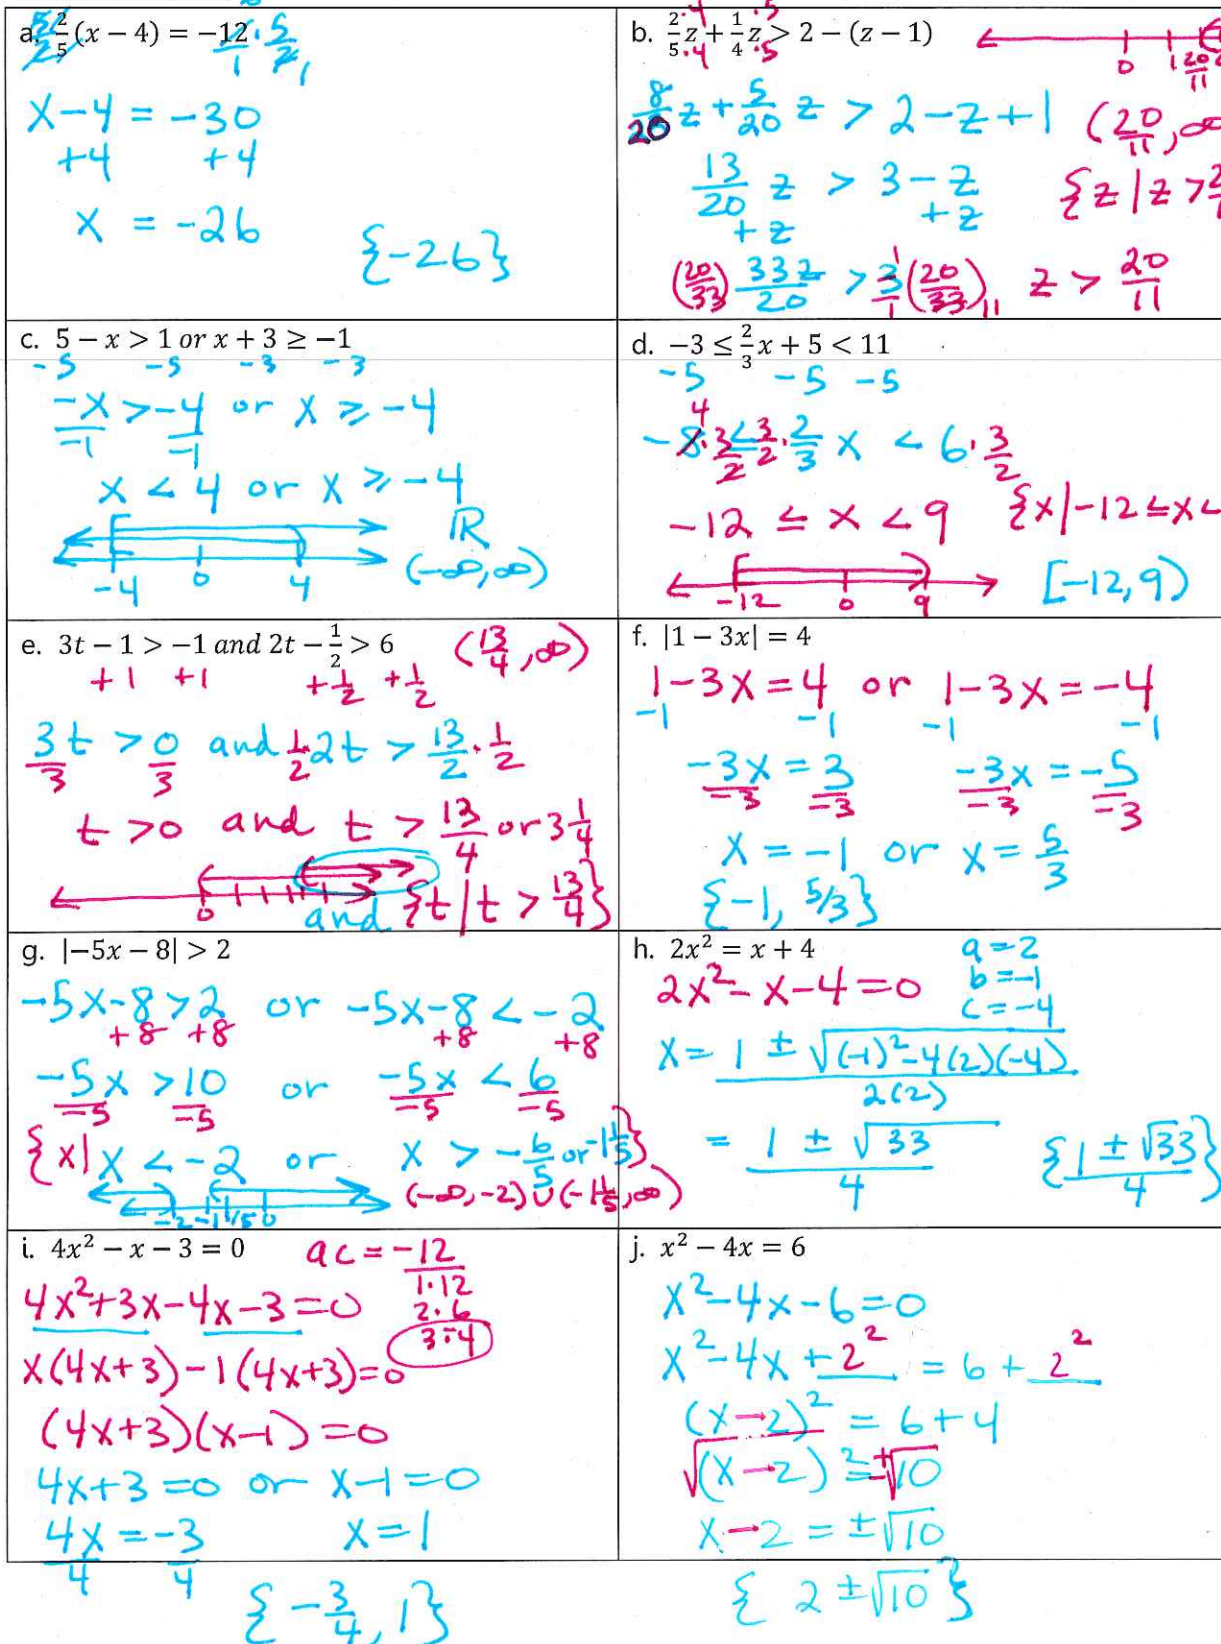 a. 5/2 · 2/5 (x − 4) = −12/1 · 5/2
x − 4 = −30
+4 +4
x = −26
{−26}
b. 2·4/5·4 z + 1·5/4·5 z > 2 − (z − 1)
0 1 20/11
8/20 z + 5/20 z > 2 − z + 1 (20/11, ∞
13/20 z > 3 − z {z | z >
+z +z
(20/33) 33z/20 > 3/1 (20/33) 1 11 z > 20/11
c. 5 − x > 1 or x + 3 ≥ −1
−5 −5 −3 −3
−x/−1 > −4/−1 or x ≥ −4
x < 4 or x ≥ −4
ℝ
−4 0 4 (−∞, ∞)
d. −3 ≤ 2/3 x + 5 < 11
−5 −5 −5
4
−8 · 3/2 ≤ 3/2 · 2/3 x < 6 · 3/2
−12 ≤ x < 9 {x | −12 ≤ x <
−12 0 9 [−12, 9)
e. 3t − 1 > −1 and 2t − 1/2 > 6 (13/4, ∞)
+1 +1 +1/2 +1/2
3t/3 > 0/3 and 1/2 · 2t > 13/2 · 1/2
t > 0 and t > 13/4 or 3 1/4
0 and {t | t > 13/4}
f. |1 − 3x| = 4
1 − 3x = 4 or 1 − 3x = −4
−1 −1 −1 −1
−3x/−3 = 3/−3 −3x/−3 = −5/−3
x = −1 or x = 5/3
{−1, 5/3}
g. |−5x − 8| > 2
−5x − 8 > 2 or −5x − 8 < −2
+8 +8 +8 +8
−5x/−5 > 10/−5 or −5x/−5 < 6/−5
{x | x < −2 or x > −6/5 or −1 1/5}
−2 −1 1/5 0 (−∞, −2) ∪ (−1 1/5, ∞)
h. 2x² = x + 4 a = 2
2x² − x − 4 = 0 b = −1
c = −4
x = 1 ± √((−1)² − 4(2)(−4)) / 2(2)
= 1 ± √33 / 4 {1 ± √33 / 4}
i. 4x² − x − 3 = 0 ac = −12
4x² + 3x − 4x − 3 = 0 1·12
2·6
3·−4
x(4x + 3) − 1(4x + 3) = 0
(4x + 3)(x − 1) = 0
4x + 3 = 0 or x − 1 = 0
4x/4 = −3/4 x = 1
{−3/4, 1}
j. x² − 4x = 6
x² − 4x − 6 = 0
x² − 4x + 2² = 6 + 2²
(x − 2)² = 6 + 4
√(x − 2)² = ±√10
x − 2 = ±√10
{2 ± √10}